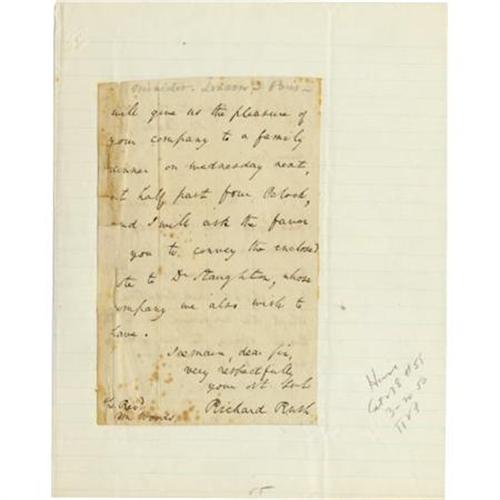 Minister. London & Paris
will give us the pleasure of
your company to a family
dinner on wednesday next,
at half past four Oclock,
and I will ask the favor
you to convey the enclosed
ote to Dr Staughton, whose
company we also wish to
have.
I remain, dear Sir,
very respectfully
your obt Servt
Richard Rush
Revd
Mr Woods
55